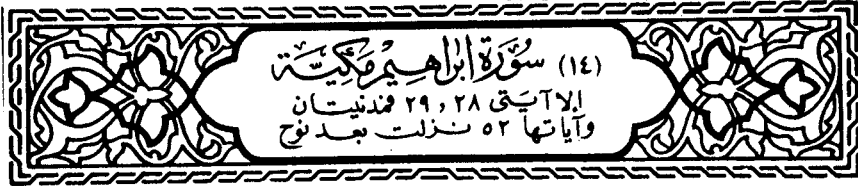 (١٤) سُورَة إبراهيم مَكيّة
إلا آيَتى ٢٨ و ٢٩ فمدنيتان
وآياتها ٥٢ نزلت بعد نوح